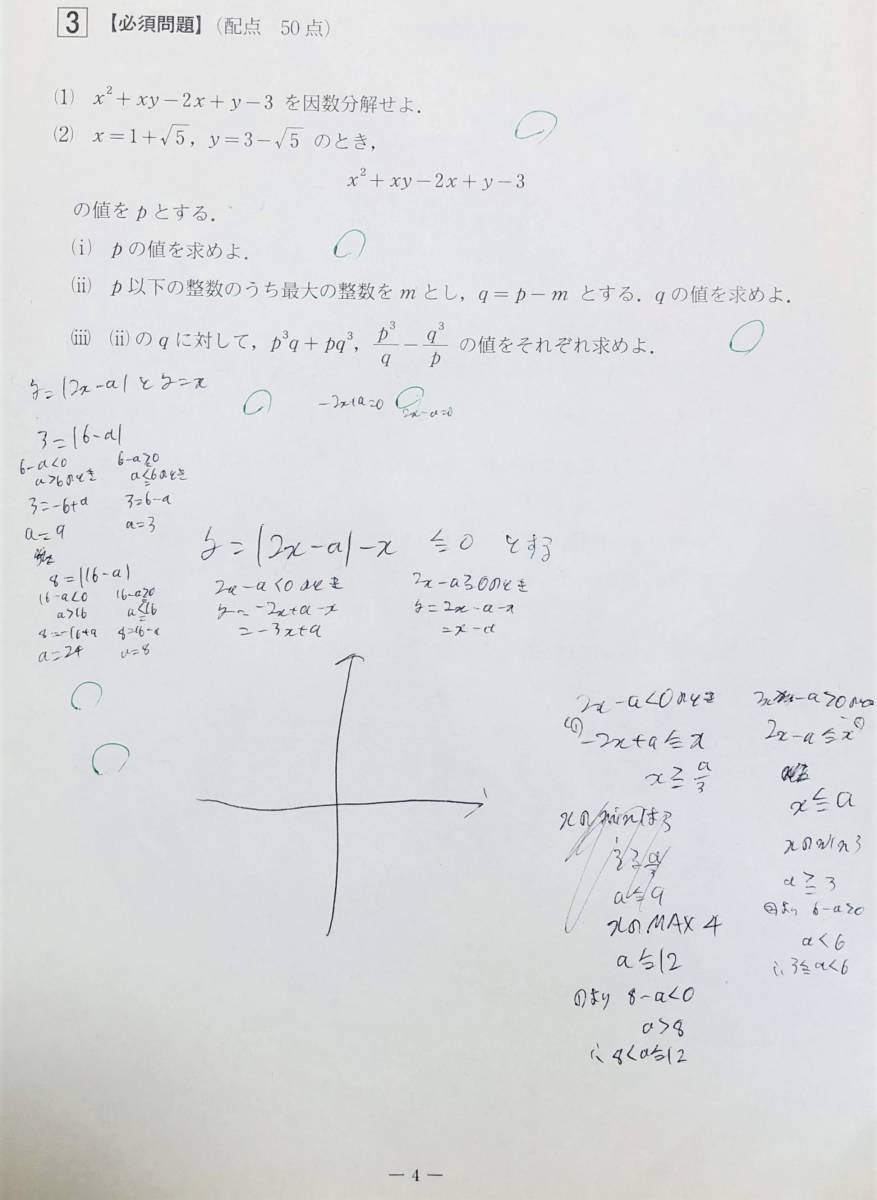 3 【必須問題】(配点 50点)
(1) x²+xy−2x+y−3 を因数分解せよ.
(2) x=1+√5, y=3−√5 のとき,
x²+xy−2x+y−3
の値を p とする.
(i) p の値を求めよ.
(ii) p 以下の整数のうち最大の整数を m とし, q=p−m とする. q の値を求めよ.
(iii) (ii)の q に対して, p³q+pq³, p³/q − q³/p の値をそれぞれ求めよ.
y=|2x−a| と y=x
−2x+a=0
2x−a=0
3=|6−a|
6−a<0
a>6のとき
3=−6+a
a=9
6−a≧0
a≦6のとき
3=6−a
a=3
8=|16−a|
16−a<0
a>16
8=−16+a
a=24
16−a≧0
a≦16
8=16−a
a=8
y=|2x−a|−x ≦0 とする
2x−a<0のとき
y=−2x+a−x
=−3x+a
2x−a≧0のとき
y=2x−a−x
=x−a
2x−a<0のとき
−2x+a≦x
x≧a/3
xのminは3
3≧a/3
a≦9
xのMAX 4
a≦12
①より 8−a<0
a>8
∴ 8<a≦12
2x−a≦x
x≦a
xのmin3
a≧3
6−a≥0
a<6
∴3≦a<6
— 4 —